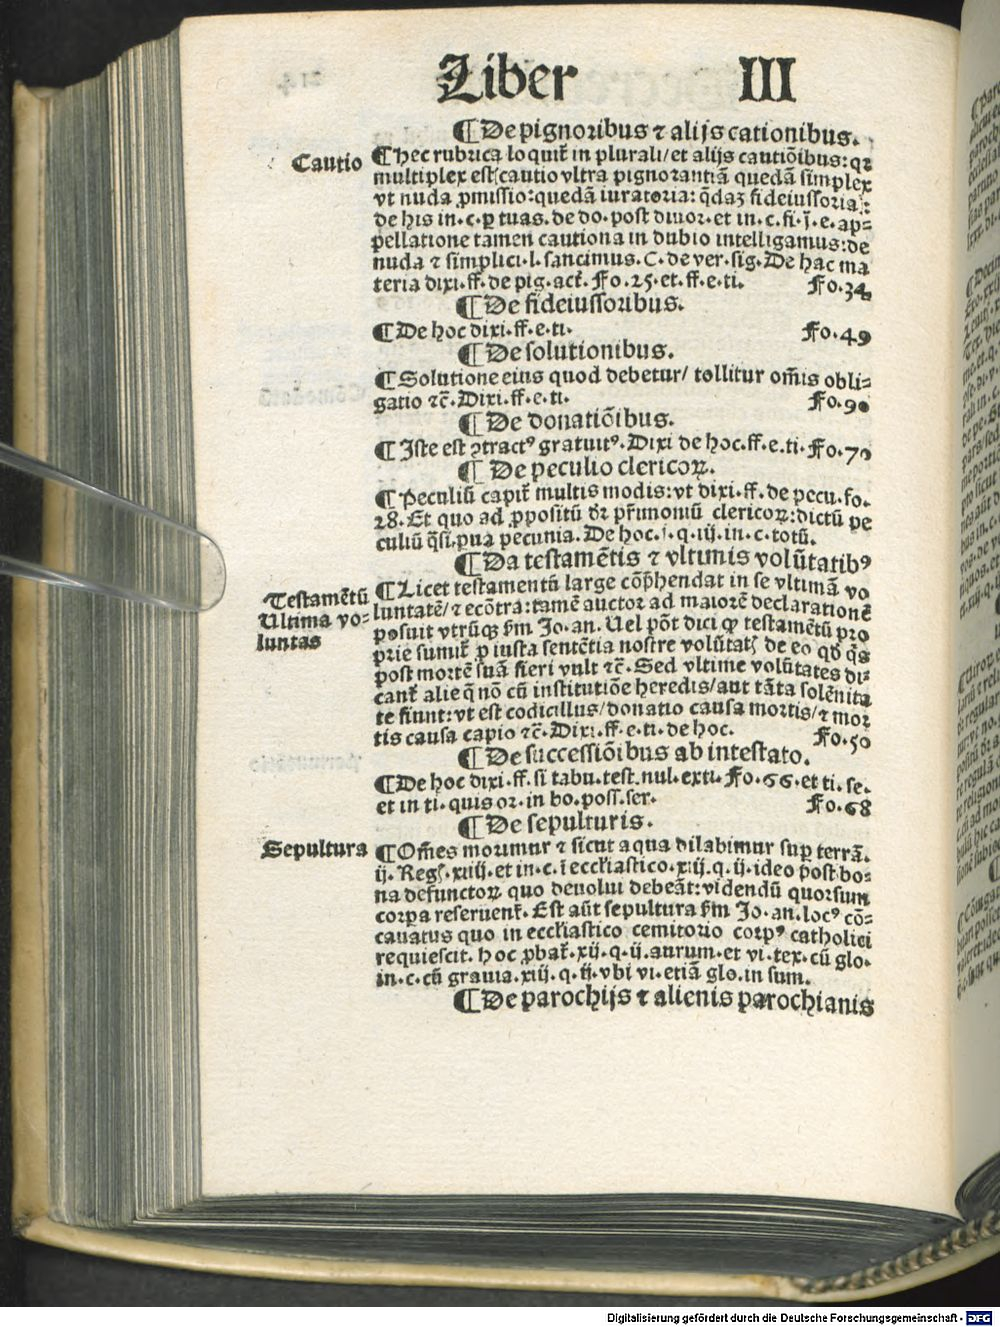 Liber III
¶ De pignoribus ⁊ alijs cationibus.
Cautio
¶ Hec rubrica loquit̃ in plurali/et alijs cautiõibus: qꝛ
multiplex est cautio vltra pignorantiã quedã simplex
vt nuda ꝓmissio: quedã iuratoria: q̃daꝫ fideiussoria:
de his in.c.ꝑ tuas.de do.post diuor.et in.c.fi.ĩ.e.ap=
pellatione tamen cautiona in dubio intelligamus: de
nuda ⁊ simplici.l.sancimus.C.de ver.sig.De hac ma
teria dixi.ff.de pig.act̃.Fo.25.et.ff.e.ti. Fo.34
¶ De fideiussoribus.
¶ De hoc dixi.ff.e.ti. Fo.49
¶ De solutionibus.
¶ Solutione eius quod debetur/ tollitur om̃is obli=
gatio ⁊c̃.Dixi.ff.e.ti. Fo.90
¶ De donatiõibus.
¶ Iste est ꝯtractꝰ gratuitꝰ.Dixi de hoc.ff.e.ti.Fo.70
¶ De peculio clericoꝝ.
¶ Peculiũ capit̃ multis modis: vt dixi.ff.de pecu.fo.
28.Et quo ad ꝓpositũ dr̃ pr̃imoniũ clericoꝝ: dictũ pe
culiũ q̃si pua pecunia.De hoc.j.q.iij.in.c.totũ.
¶ Da testamẽtis ⁊ vltimis volũtatibꝰ
Testamẽtũ
Ultima vo=
luntas
¶ Licet testamentũ large cõp̃hendat in se vltimã vo
luntatẽ/⁊ ecõtra: tamẽ auctor ad maiorẽ declarationẽ
posuit vtrũqꝫ ẜm Jo.an.Uel põt dici ꝙ testamẽtũ pro
prie sumit̃ ꝓ iusta sentẽtia nostre volũtatꝭ de eo qd̕ q̃s
post mortẽ suã fieri vult ⁊c̃.Sed vltime volũtates di=
cant̃ alie q̃ nõ cũ institutiõe heredis/aut tãta solẽnita
te fiunt: vt est codicillus/donatio causa mortis/⁊ mor
tis causa capio ⁊c̃.Dixi.ff.e.ti.de hoc. Fo.50
¶ De successiõibus ab intestato.
¶ De hoc dixi.ff.si tabu.test.nul.exti.Fo.66.et ti.se.
et in ti.quis or.in bo.poss.ser. Fo.68
¶ De sepulturis.
Sepultura
¶ Om̃es morimur ⁊ sicut aqua dilabimur suꝑ terrã.
ij.Regꝭ.xiiij.et in.c.ĩ eccl̃iastico.xiij.q.ij.ideo post bo=
na defunctoꝝ quo deuolui debeãt: videndũ quorsum
corpa reseruent̃.Est aũt sepultura ẜm Jo.an.locꝰ cõ=
cauatus quo in eccl̃iastico cemitorio corpꝰ catholici
requiescit.hoc ꝓbat̃.xij.q.ij.aurum.et vi.tex.cũ glo.
in.c.cũ grauia.xiij.q.ij.vbi vi.etiã glo.in sum.
¶ De parochijs ⁊ alienis parochianis
Digitalisierung gefördert durch die Deutsche Forschungsgemeinschaft - DFG